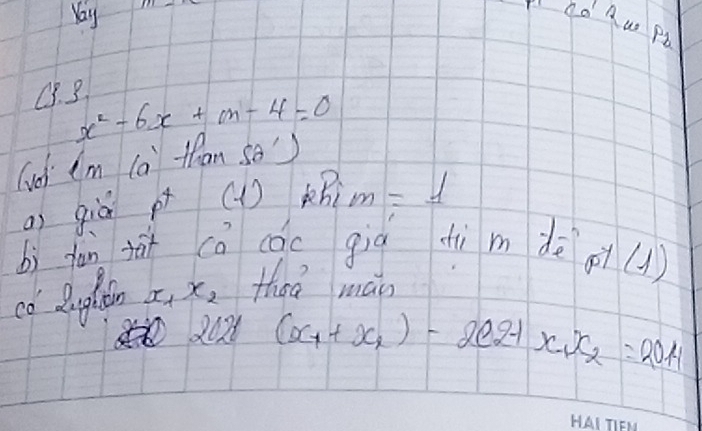 Vậy
có 2 no pb
B.3.
x² - 6x + m - 4 = 0
(với (m là than số)
a) giải pt (1) khi m = 1
b) tìm tất cả các giá tri m để pt (1)
có 2 nghiệm x₁ x₂ thoả mãn
2021 (x₁ + x₂) - 2021 x₁x₂ = 2014
HẢI TIẾN